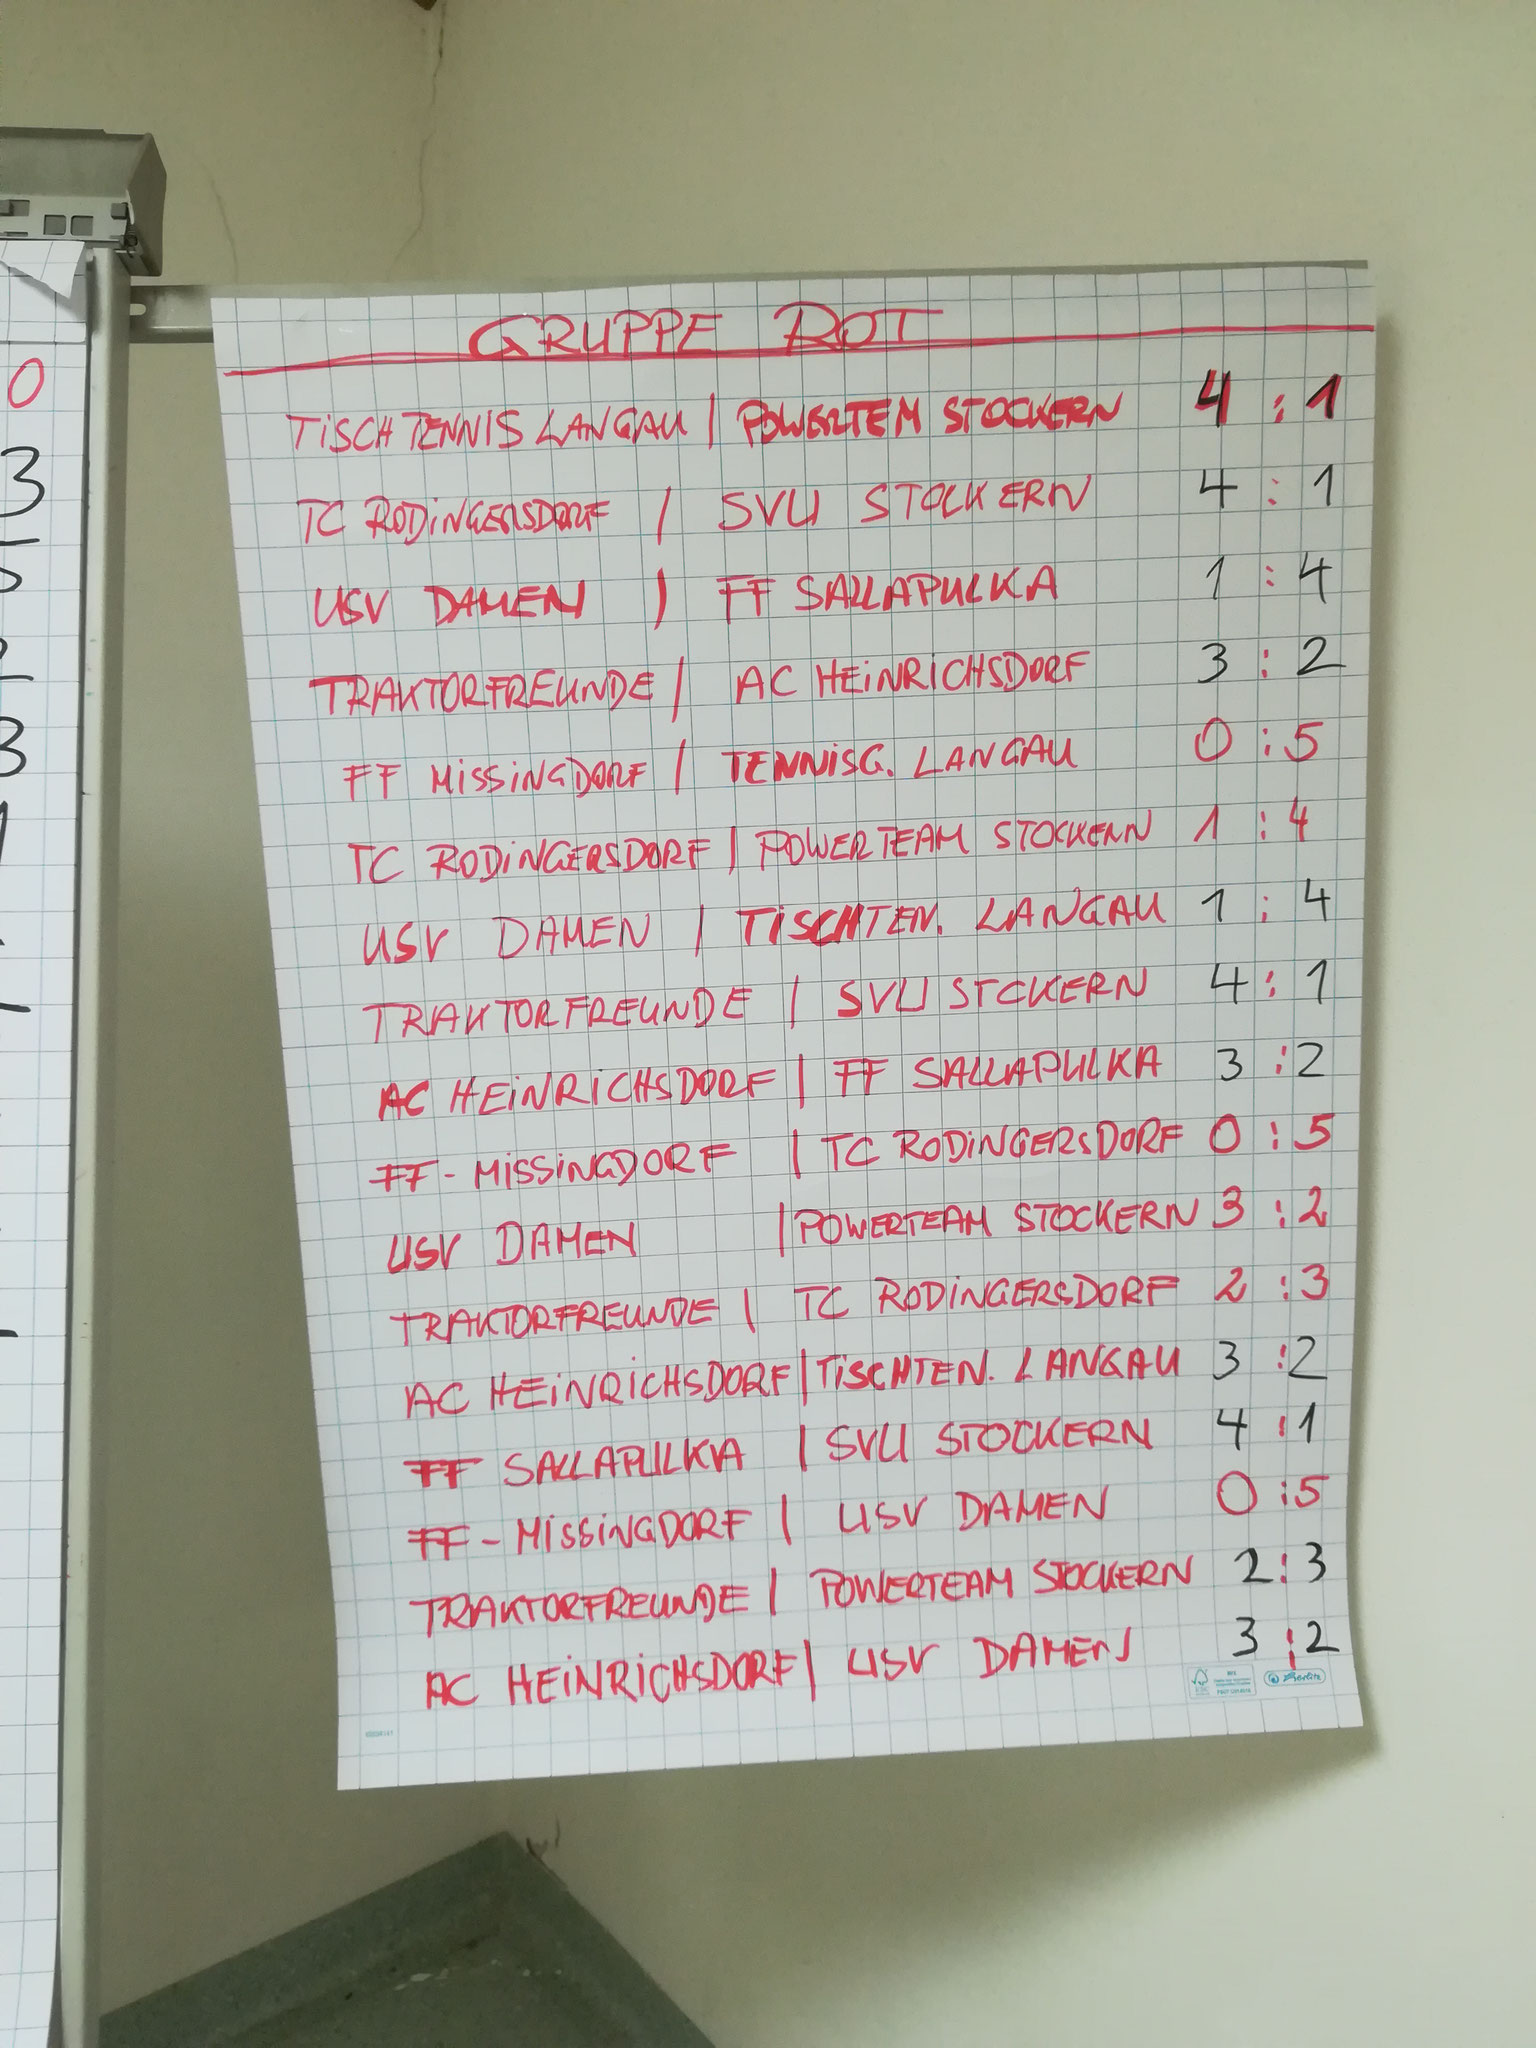 GRUPPE ROT
TISCHTENNIS LANGAU | POWERTEM STOCKERN 4 : 1
TC RODINGERSDORF | SVU STOCKERN 4 : 1
USV DAMEN | FF SALLAPULKA 1 : 4
TRAKTORFREUNDE | AC HEINRICHSDORF 3 : 2
FF MISSINGDORF | TENNISG. LANGAU 0 : 5
TC RODINGERSDORF | POWERTEAM STOCKERN 1 : 4
USV DAMEN | TISCHTEN. LANGAU 1 : 4
TRAKTORFREUNDE | SVU STOKERN 4 : 1
AC HEINRICHSDORF | FF SALLAPULKA 3 : 2
FF - MISSINGDORF | TC RODINGERSDORF 0 : 5
USV DAMEN | POWERTEAM STOCKERN 3 : 2
TRAKTORFREUNDE | TC RODINGERSDORF 2 : 3
AC HEINRICHSDORF | TISCHTEN. LANGAU 3 : 2
FF SALLAPULKA | SVU STOCKERN 4 : 1
FF - MISSINGDORF | USV DAMEN 0 : 5
TRAKTORFREUNDE | POWERTEAM STOCKERN 2 : 3
AC HEINRICHSDORF | USV DAMEN 3 : 2
Berlitz
0
3
5
2
3
1